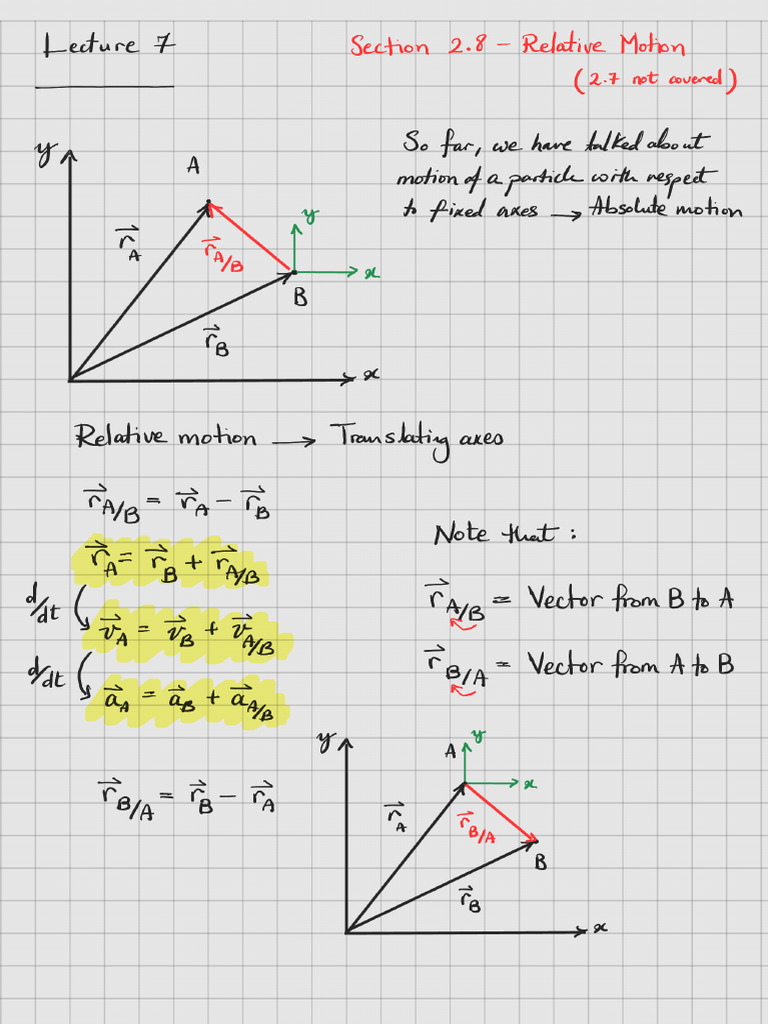 Lecture 7
Section 2.8 – Relative Motion
(2.7 not covered)
So far, we have talked about
motion of a particle with respect
to fixed axes → Absolute motion
y
A
r⃗_A
r⃗_A/B
y
x
B
r⃗_B
x
Relative motion → Translating axes
r⃗_A/B = r⃗_A − r⃗_B
r⃗_A = r⃗_B + r⃗_A/B
d/dt
v⃗_A = v⃗_B + v⃗_A/B
d/dt
a⃗_A = a⃗_B + a⃗_A/B
r⃗_B/A = r⃗_B − r⃗_A
Note that :
r⃗_A/B = Vector from B to A
r⃗_B/A = Vector from A to B
y
A
y
x
r⃗_A
r⃗_B/A
B
r⃗_B
x